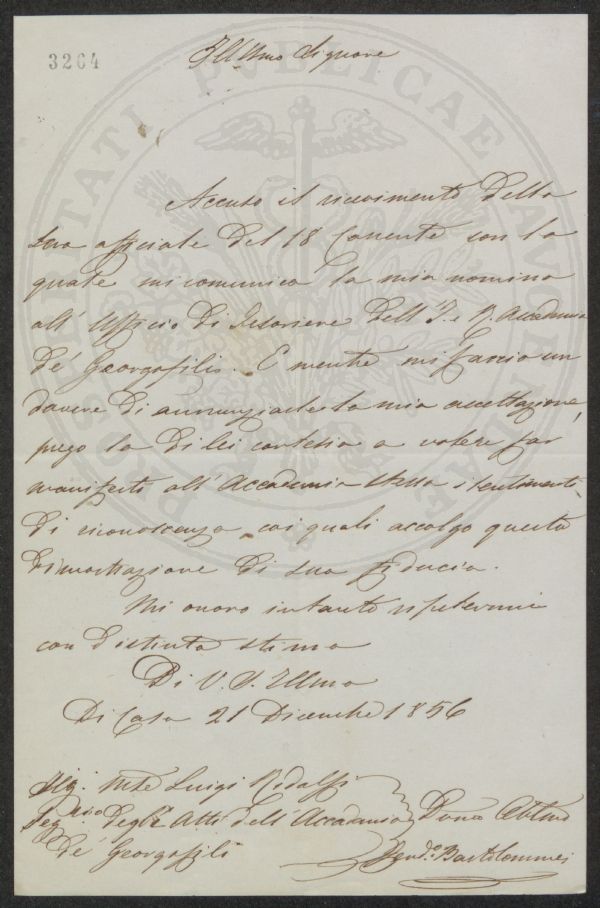 3264
Ill.mo Signore
Accuso il ricevimento della
sua officiale del 18 Corrente con la
quale mi comunica la mia nomina
all' Uffizio di Tesoriere dell' I. e R. Accademia
de' Georgofili. E mentre mi faccio un
dovere di annunziarle la mia accettazione,
prego la di lei cortesia a volere far
manifesti all' Accademia stessa i sentimenti
di riconoscenza coi quali accolgo questa
dimostrazione di sua fiducia.
Mi onoro intanto ripetermi
con distinta stima
Di V. S. Ill.ma
Di Casa 21 Dicembre 1856
Sig. Luigi Ridolfi
Seg.rio degli Atti dell' Accademia
de' Georgofili
Obb.mo
Ferd.o Bartolommei
PROSPERITATI PUBLICAE AUGENDAE